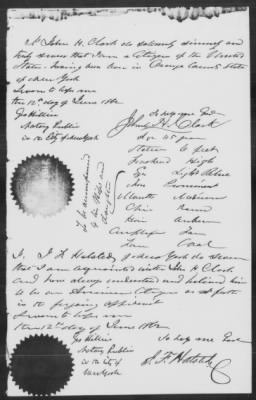 I John H. Clark do solemnly sincerely and
truly swear that I am a Citizen of the United
States having been born in Orange County State
of New York
Sworn to before me
the 12th day of June 1862
Geo Hillier
Notary Public
in the City of New York
So help me God
John H. Clark
Age 45 years
Stature 6 feet
Forehead High
Eyes Light Blue
Nose Prominent
Mouth Medium
Chin Round
Hair Auburn
Complexion
Face Oval
To be accompanied
by his Wife and
daughter
I, J. F. Halsted, of New York do swear
that I am acquainted with John H. Clark
and have always understood and believed him
to be an American Citizen as set forth
in the foregoing affidavit
Sworn to before me
the 12th day of June 1862
Geo Hillier
Notary Public
in the City of
New York
So help me God
J. F. Halsted